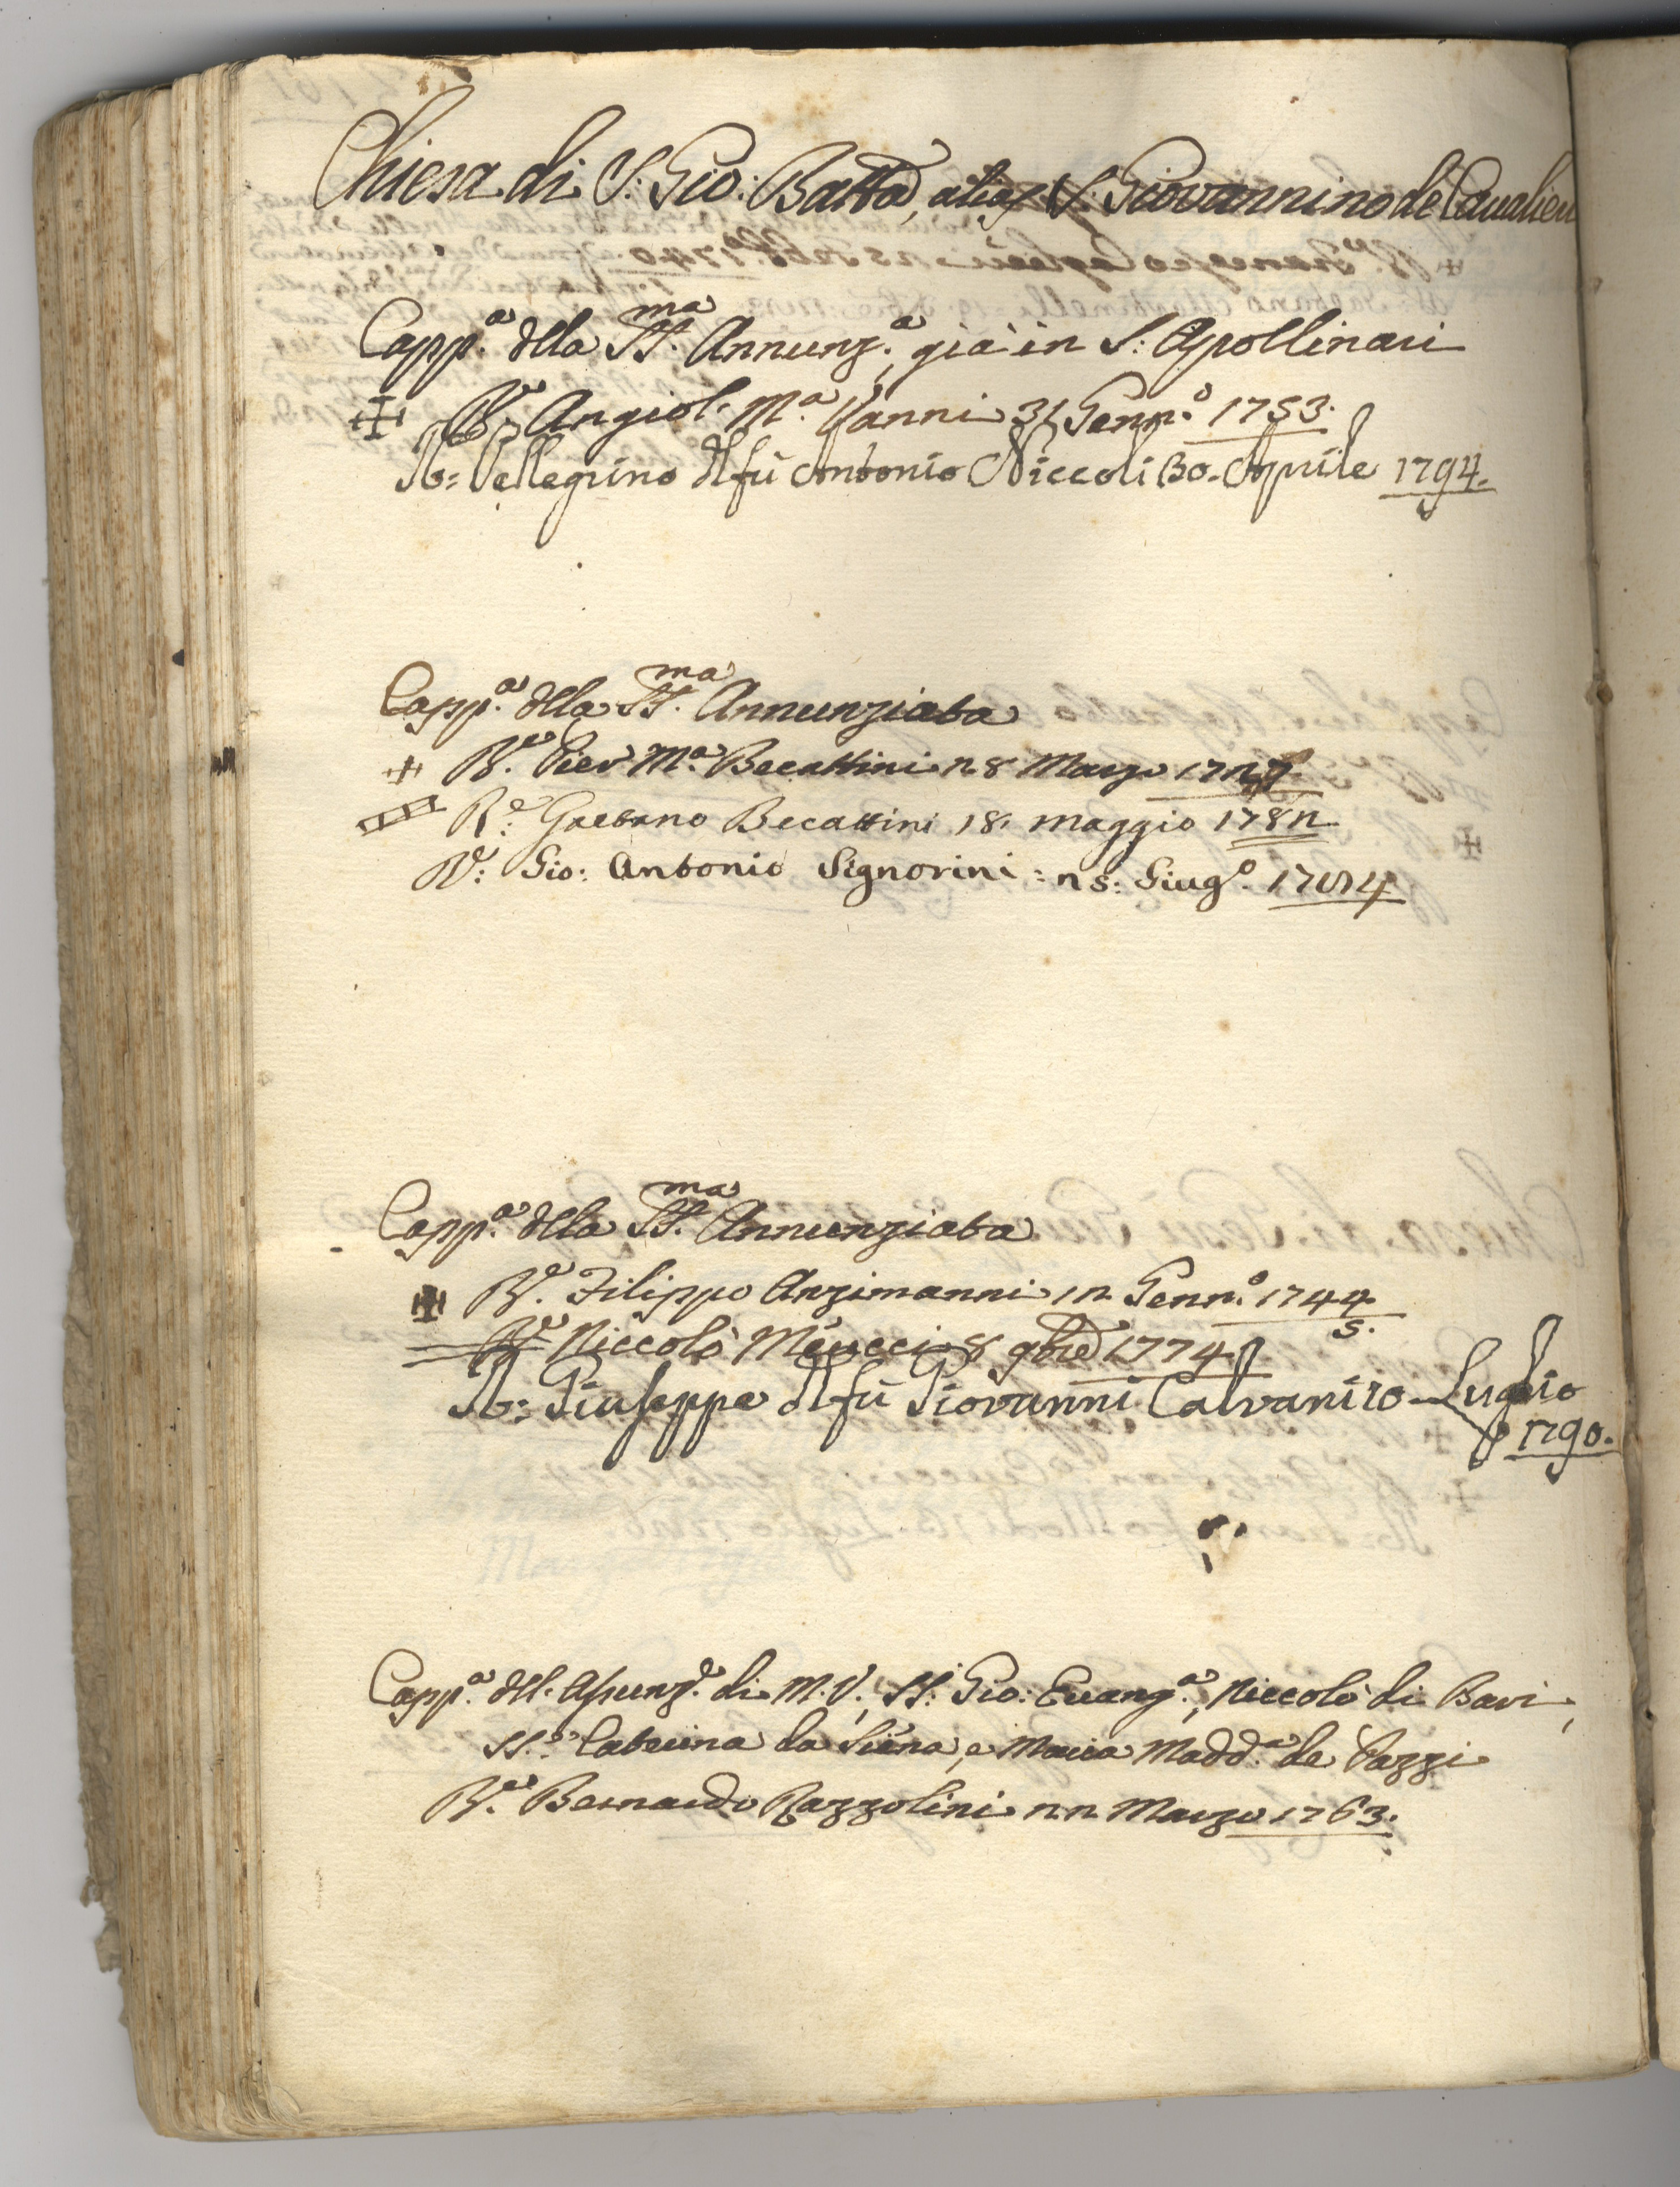 Chiesa di S: Gio: Batta, alias S: Giovannino de Cavalieri
Capp.a della SS.ma Annunz.a, già in S: Apollinari
R.e Angiol. M.a Vanni 31 Genn.o 1753.
R: Pellegrino del fù Antonio Niccoli 30. Aprile 1794.
Capp.a della SS.ma Annunziata
R.e Pier M.a Becattini 28 Marzo
R.e Gaetano Becattini 18. Maggio 1782
R: Gio: Antonio Signorini: 25: Giug.o 1784
Capp.a della SS.ma Annunziata
R.e Filippo Anzimanni 12 Genn.o 1744/5.
R.e Niccolò Meucci 8 9bre 1774
R: Giuseppe del fù Giovanni Calvani 10 Luglio
1790.
Capp.a dell. Assunz.e di M.V., SS: Gio: Evang.a, Niccolò di Bari,
SS.e Caterina da Siena, e Maria Madd.a de Pazzi
R.e Bernardo Razzolini 22 Marzo 1763.